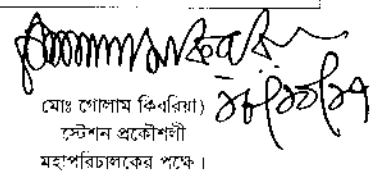 মোঃ গোলাম কিবরিয়া)
স্টেশন প্রকৌশলী
মহাপরিচালকের পক্ষে।